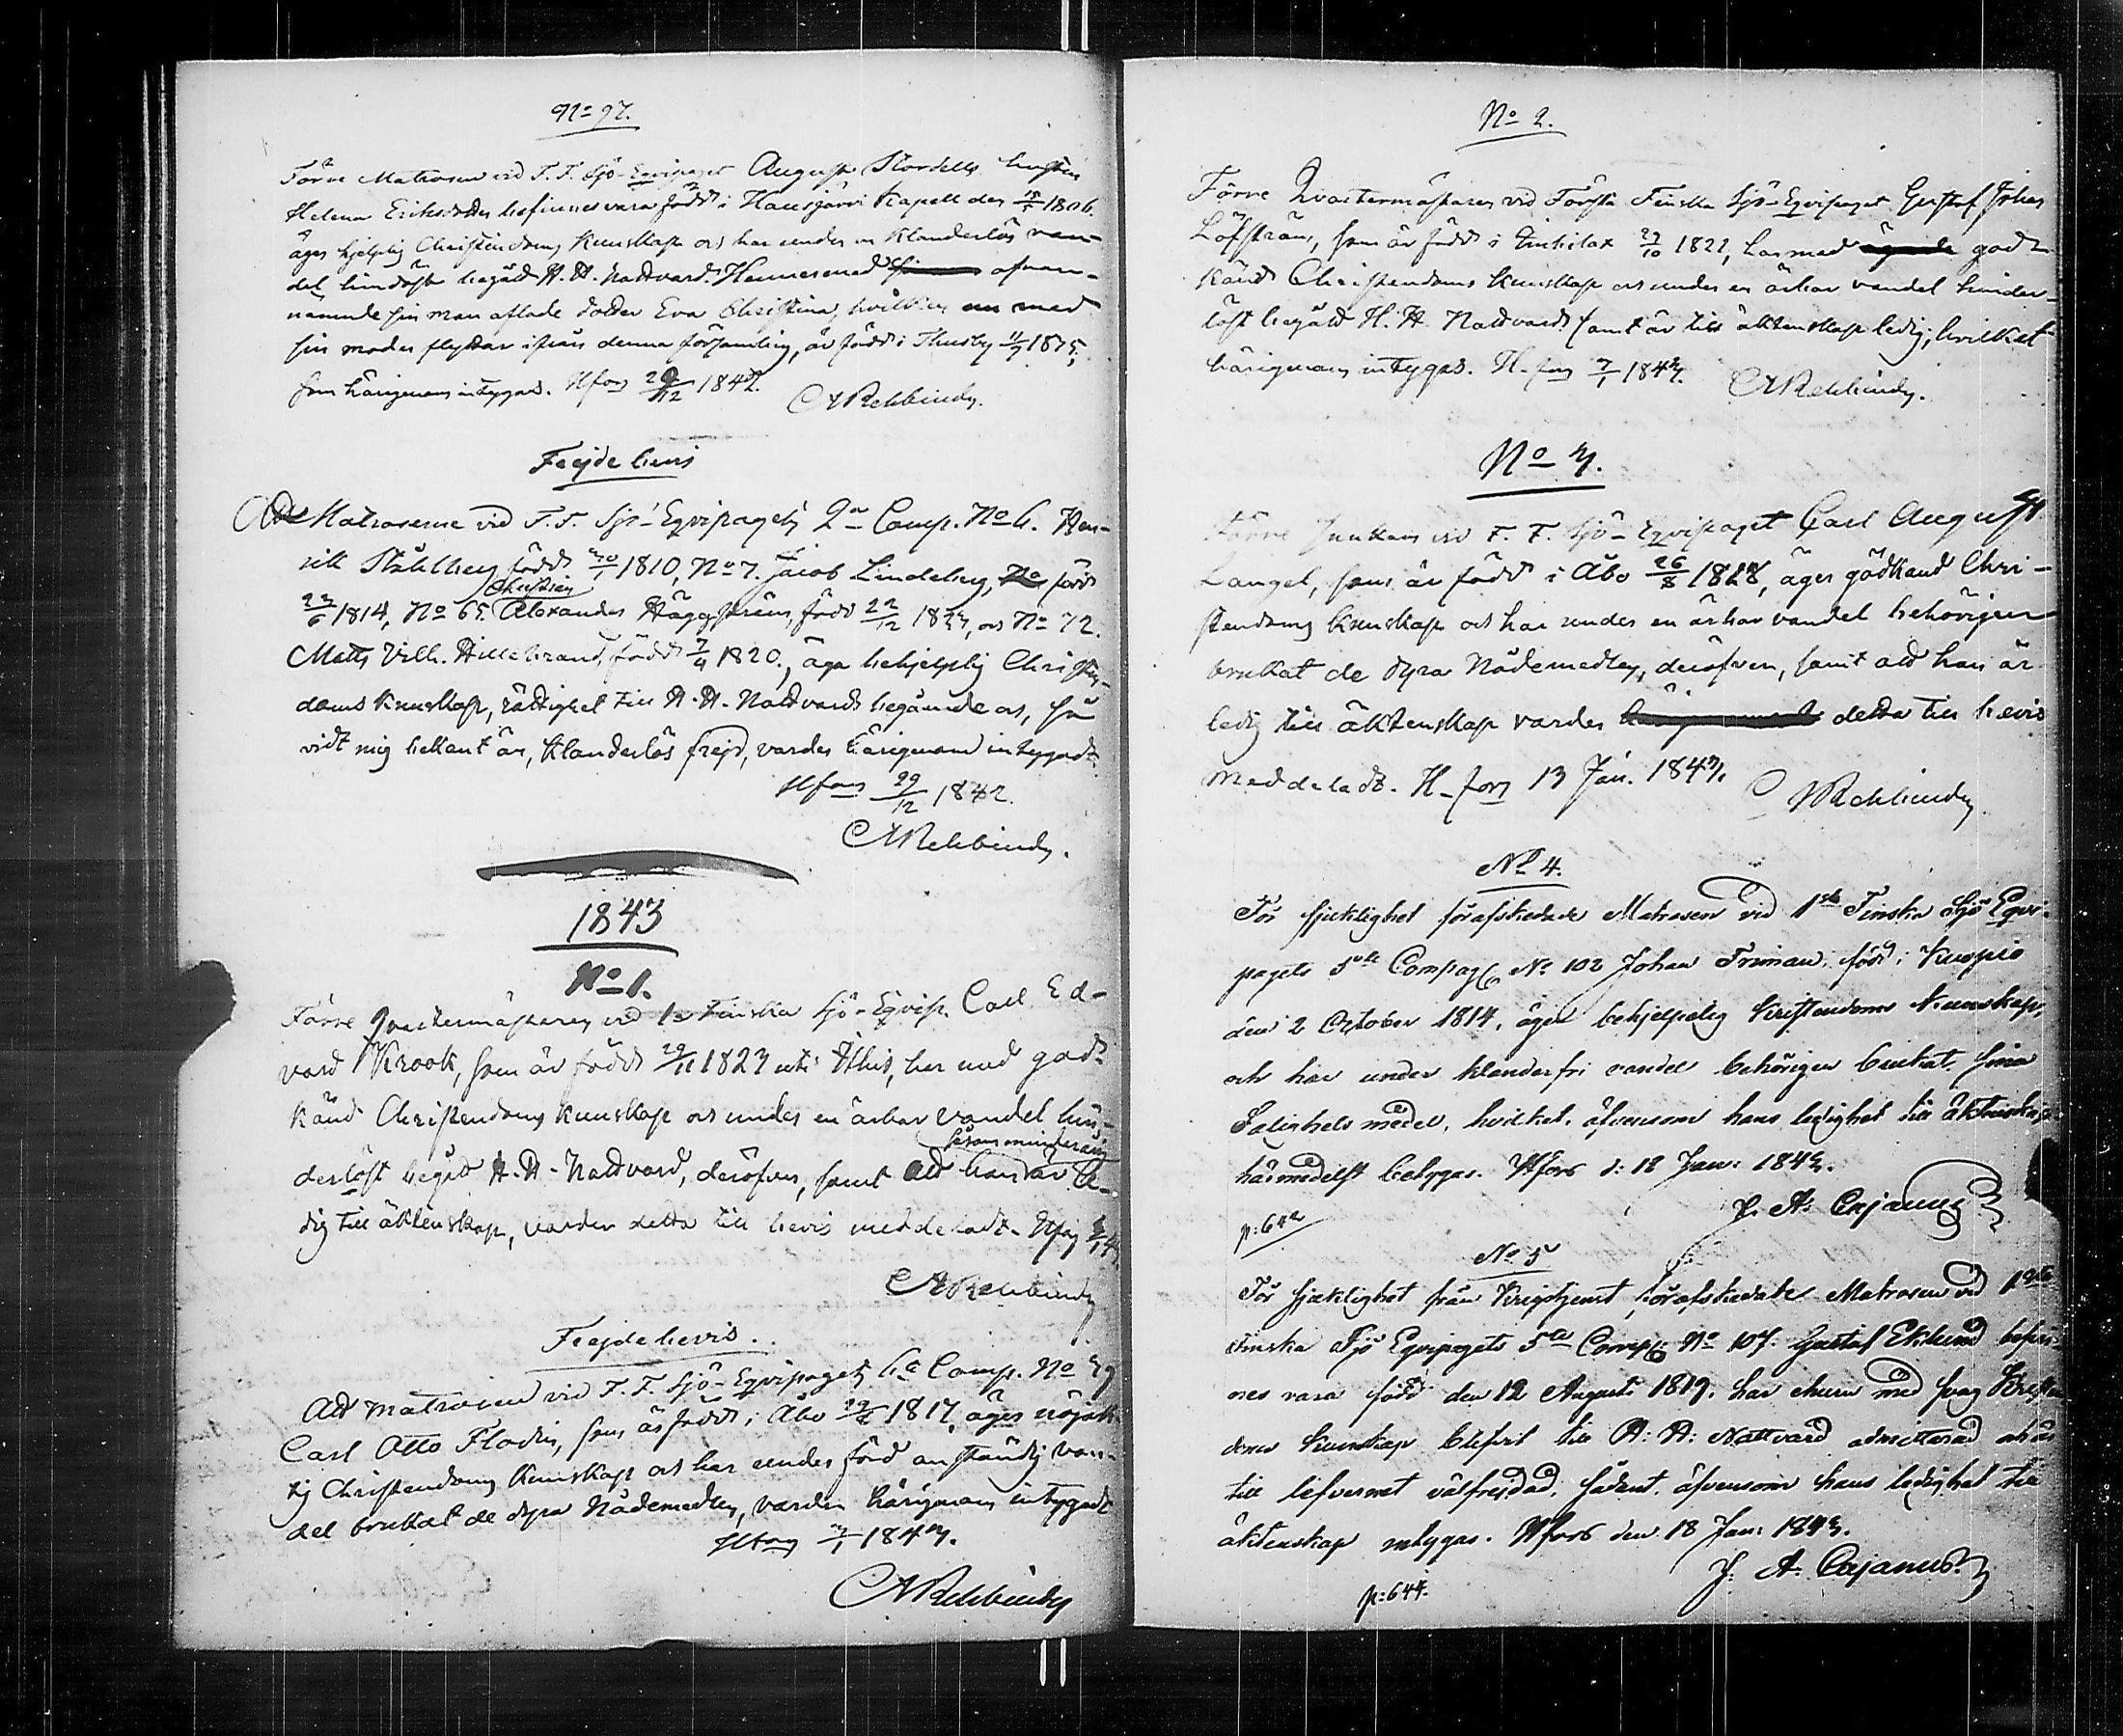 No 97.
Förre Matrosen vid F. F. Sjö-Eqvipaget August Nordells hustru
Helena Eriksdotter befinnes vara född i Hausjärvi Kapell den 1806.
äger hjelplig Christendoms kunskap och har under en klanderlös van-
del hindöst begått H. H. Nattvard. Hennes med ofvan-
nämnde sin man aflade dotter Eva Christina, hvilken nu med
sin moder flyttar ifrån denna församling, är född i Thusby 11/9 1835,
som härigenom intygas. Hfors 29/12 1842.
CARehbinder.
Frejdebevis
Att Matroserne vid F. F. Sjö-Eqvipagets 2a Comp. No 6. Hen-
rik Ståhlberg född 30/1 1810, No 7. Jacob Lindeberg, född
23/6 1814, No 65. Christian Alexander Häggström, född 22/12 1823, och No 72.
Matts Vilh. Hillebrand, född 7/4 1820, äga behjelplig Christen-
doms kunskap, rättighet till H. H. Nattvards begående och, så
vidt mig bekant är, klanderlös frejd, varder härigenom intygadt.
Hfors 29/12 1842.
CARehbinder.
1843
No 1.
Förre Qvartermästaren vid 1a Finska Sjö-Eqvip. Carl Ed-
vard Krook, som är född 29/11 1823 uti Ithis, har med god-
känd Christendoms kunskap och under en ärbar vandel hin-
derlöst begått H. H. Nattvard, derofvan, samt att han såsom minderårig är le-
dig till äktenskap, varder detta till bevis meddeladt. Hfors
CARehbinder
Frejdebevis.
Att matrosen vid F. F. Sjö-Eqvipagets 6a Comp. No 39
Carl Otto Flodin, som är född i Åbo 1817, äger nöjak-
tig Christendoms kunskap och har under förd anständig van-
del brukat de dyra Nådemedlen, varder härigenom intygadt
Hfors 3/1 1843.
CARehbinder
No 2.
Förre Qvartermästaren vid Första Finska Sjö-Eqvipaget Gustaf Johan
Löfström, som är född i 29/10 1822, har med god-
känd Christendoms kunskap och under en ärbar vandel hinder-
löst begått H. H. Nattvard samt är till äktenskap ledig; hvilket
härigenom intygas. H-fors 7/1 1843.
CARehbinder.
No 3.
Förre Junkarn vid F. F. Sjö-Eqvipaget Carl August
Langel, som är född i Åbo 26/8 1828, äger godkänd Chri-
stendoms kunskap och har under en ärbar vandel behörigen
brukat de dyra Nådemedlen, derofvan, samt att han är
ledig till äktenskap varder detta till bevis
meddeladt. H-fors 13 Jan. 1843.
CARehbinder
No 4.
För sjuklighet förafskedade Matrosen vid 1sta Finska Sjö Eqvi-
pagets 5te Compag. No 102 Johan Friman, född i Kuopio
den 2 October 1814, äger behjelpelig Kristendoms Kunskap,
och har under klanderfri vandel behörigen brukat sina
Salighets medel, hvilket, äfvensom hans ledighet till äktenskap
härmedelst betygas. Hfors d: 18 Jan: 1843.
J. A. Cajanus
p: 642
No 5
För sjuklighet från Krigstjenst förafskedade Matrosen vid 1sta
Finska Sjö Eqvipagets 5te Comp: No 107. Gustaf Eklund befin-
nes vara född den 12 Augusti 1819. har ehuru med svag Kristen-
doms kunskap blifvit till H: H: Nattvard admitterad och är
till lefvernet välfrejdad, sådant, äfvensom hans ledighet till
äktenskap intygas. Hfors den 18 Jan: 1843.
J. A. Cajanus.
p: 644.